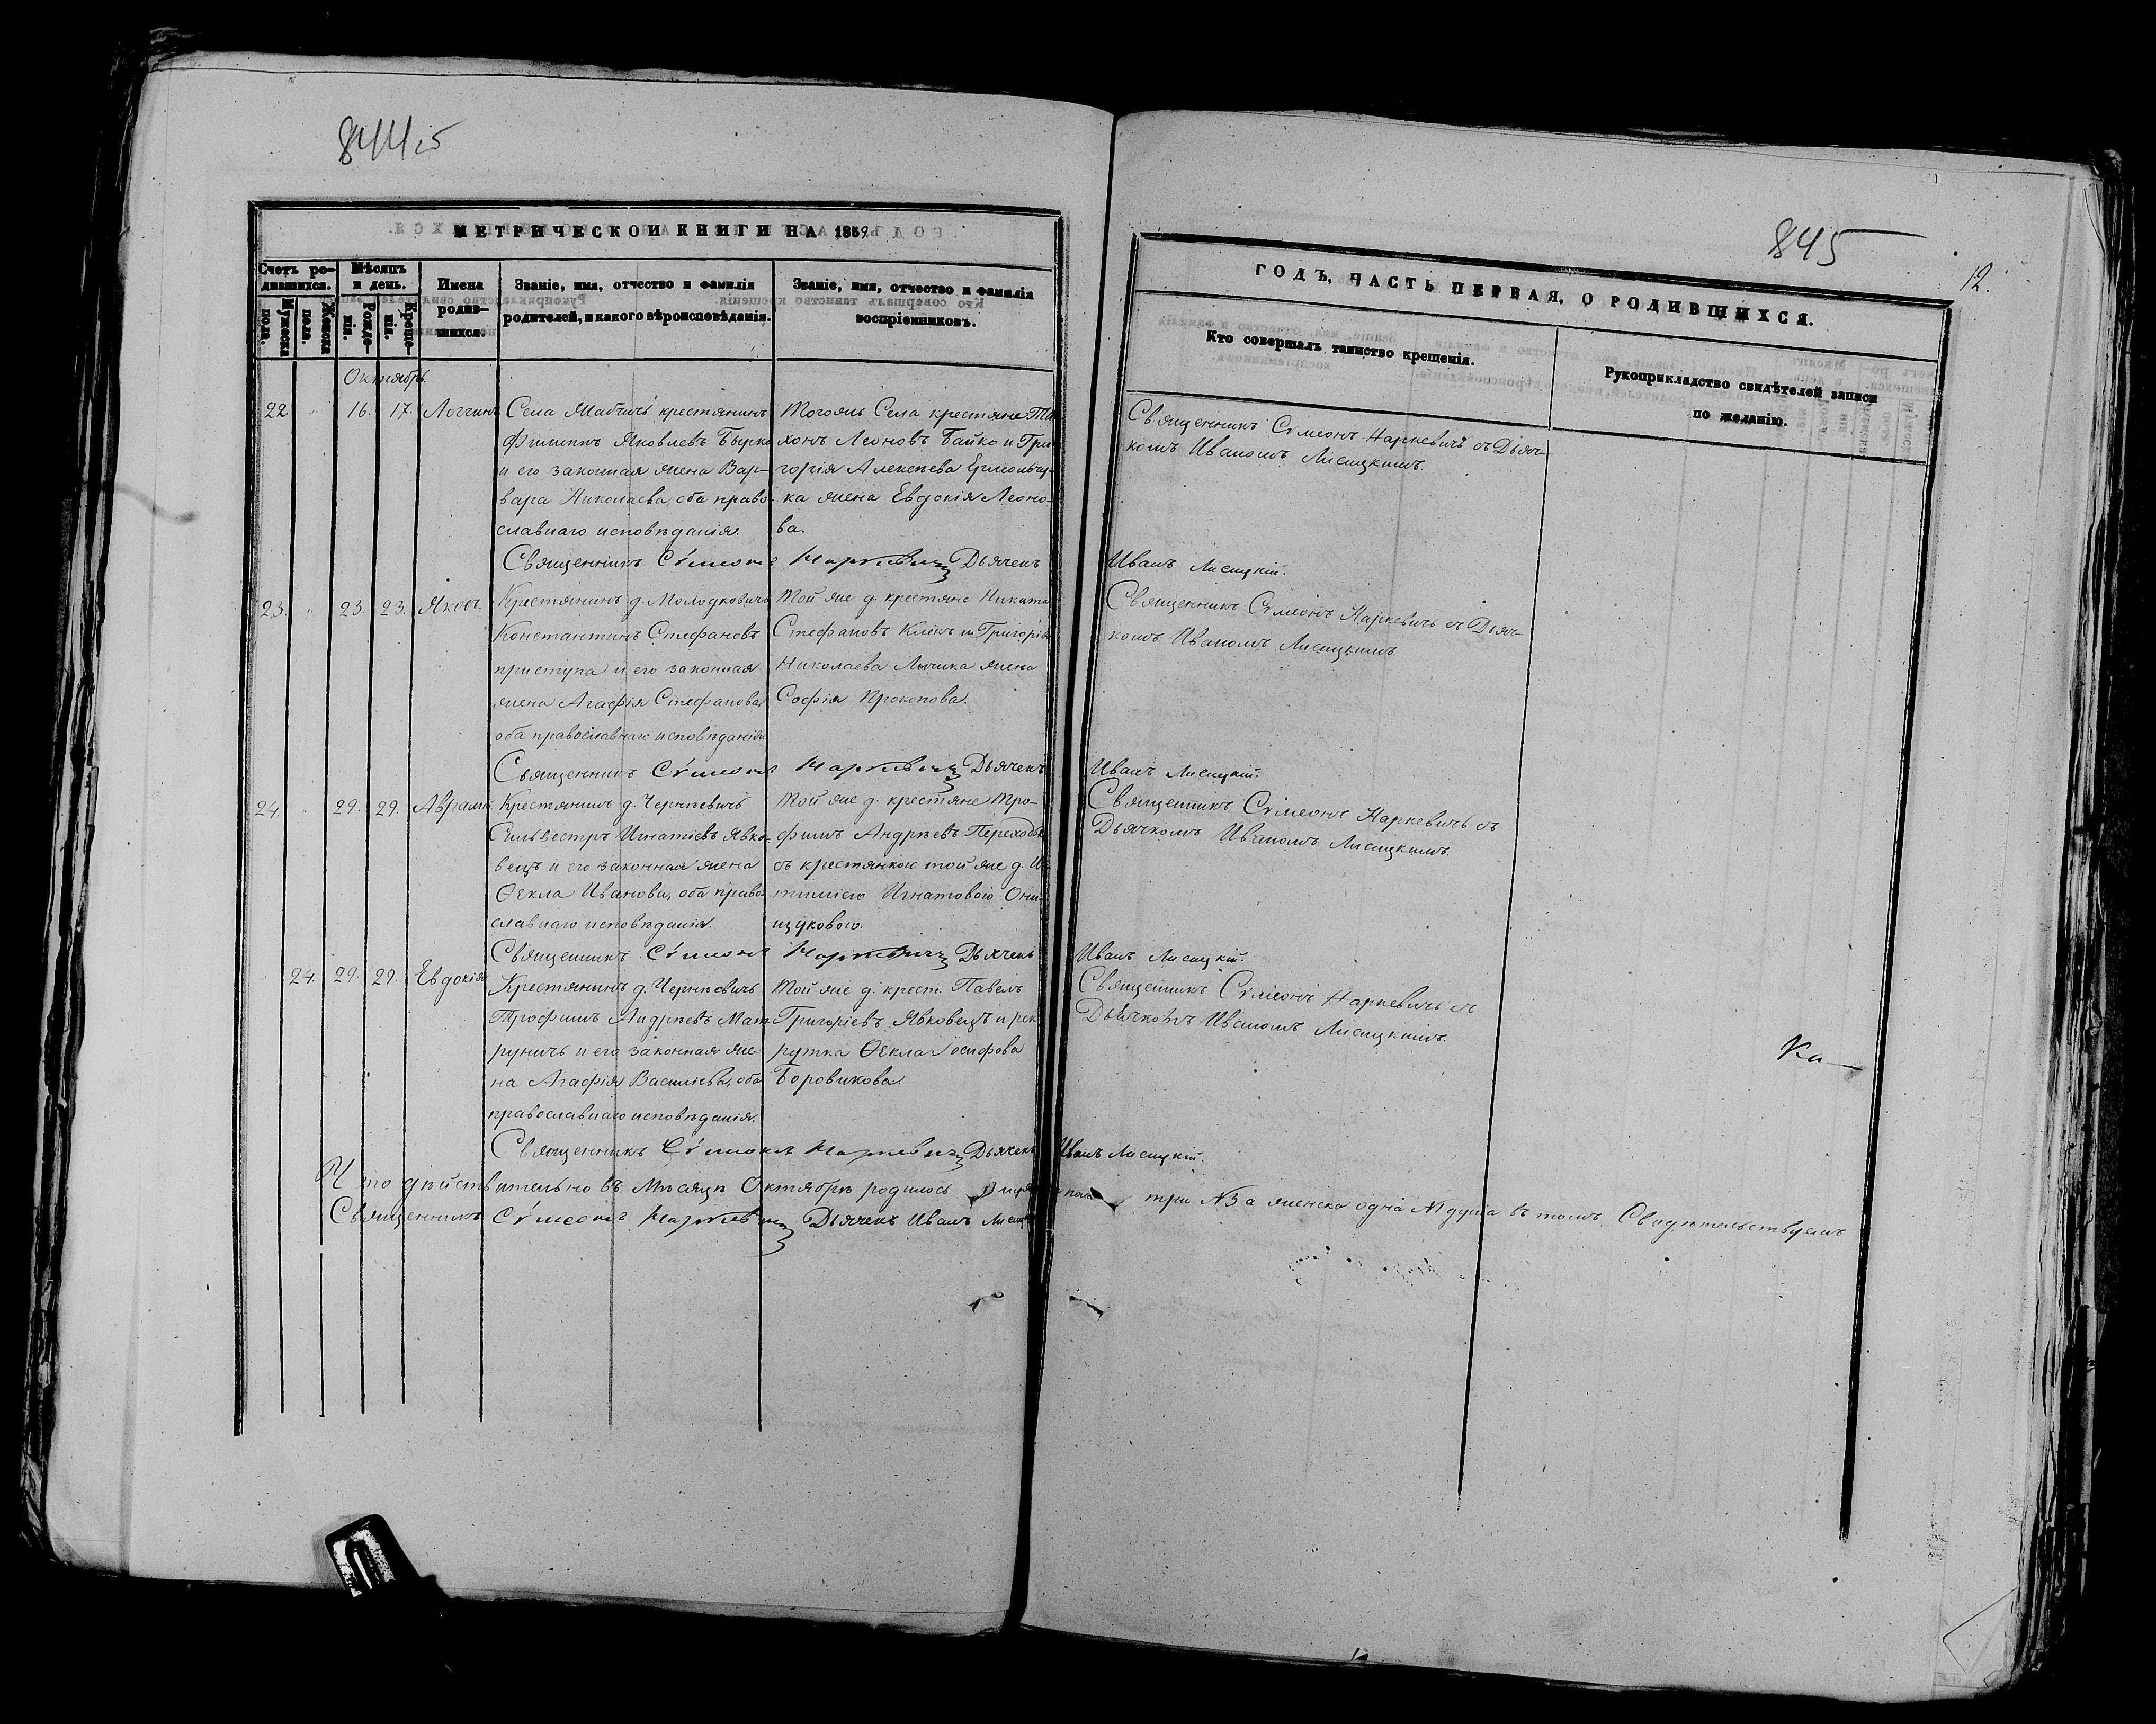 844 15
МЕТРИЧЕСКОЙ КНИГИ НА 1859
Счетъ ро-
дившихся.
Мужеска
пола.
Женска
пола.
Мѣсяцъ
и день.
Рожде-
нія.
Креще-
нія.
Имена
родив-
шихся.
Званіе, имя, отчество и фамилія
родителей, и какого вѣроисповѣданія.
Званіе, имя, отчество и фамилія
воспріемниковъ.
Октябрь.
22 " 16. 17. Логгинъ
Села Мабчичь крестянинъ
Филиппъ Яковлевъ Бырко
и его законная жена Вар-
вара Николаева, оба право-
славнаго исповѣданія.
Тогожъ Села крестяне Ти
хонъ Леоновъ Байко и Гри
горія Алексѣева Ермольчу-
ка жена Евдокія Леоно-
ва.
Священникъ Сѵмеонъ Наркевичъ Дьячекъ
23. " 23. 23. Яковъ.
Крестянинъ д. Молодковичъ
Константинъ Стефановъ
приступа и его законная
жена Агафія Стефанова
оба православнаго исповѣданія
Той же д. крестяне Никита
Стефановъ Клюкъ и Григорія
Николаева Лычика жена
Софія Прокопова.
Священникъ Сѵмеонъ Наркевичъ Дьячекъ
24. " 29. 29. Аврамій
Крестянинъ д. Чернѣевичь
Сильвестръ Игнатіевъ Явко-
вецъ и его законная жена
Ѳекла Иванова, оба право-
славнаго исповѣданія.
Той же д. крестяне Тро-
фимъ Андрѣевъ Переходько
съ крестянкою той же д.
Игнатовою Они-
щуковою.
Священникъ Сѵмеонъ Наркевичъ Дьячекъ
24. 29. 29. Евдокія
Крестянинъ д. Чернѣевичь
Трофимъ Андрѣевъ Мат-
руничъ и его законная же-
на Агафія Василіева, оба
православнаго исповѣданія.
Той же д. крест. Павелъ
Григоріевъ Явковецъ и рек
рутка Ѳекла Іосифова
Боровикова
Священникъ Сѵмеонъ Наркевичъ Дьячекъ
Что дѣйствительно въ Мѣсяцѣ Октябрѣ родилось
Священникъ Сѵмеонъ Наркевичъ Дьячекъ Иванъ
845
12.
ГОДЪ, ЧАСТЬ ПЕРВАЯ, О РОДИВШИХСЯ.
Кто совершалъ таинство крещенія.
Рукоприкладство свидѣтелей записи
по желанію.
Священникъ Сѵмеонъ Наркевичъ съ Дьяч-
комъ Иваномъ Лисицкимъ.
Иванъ Лисицкій.
Священникъ Сѵмеонъ Наркевичъ съ Дьяч-
комъ Иваномъ Лисицкимъ.
Иванъ Лисицкій.
Священникъ Сѵмеонъ Наркевичъ съ
Дьячкомъ Иваномъ Лисицкимъ.
Иванъ Лисицкій.
Священникъ Сѵмеонъ Наркевичъ съ
Дьячкомъ Иваномъ Лисицкимъ.
Иванъ Лисицкій.
пола три №3 а женска одна №1 душа въ томъ. Свидѣтельствуемъ